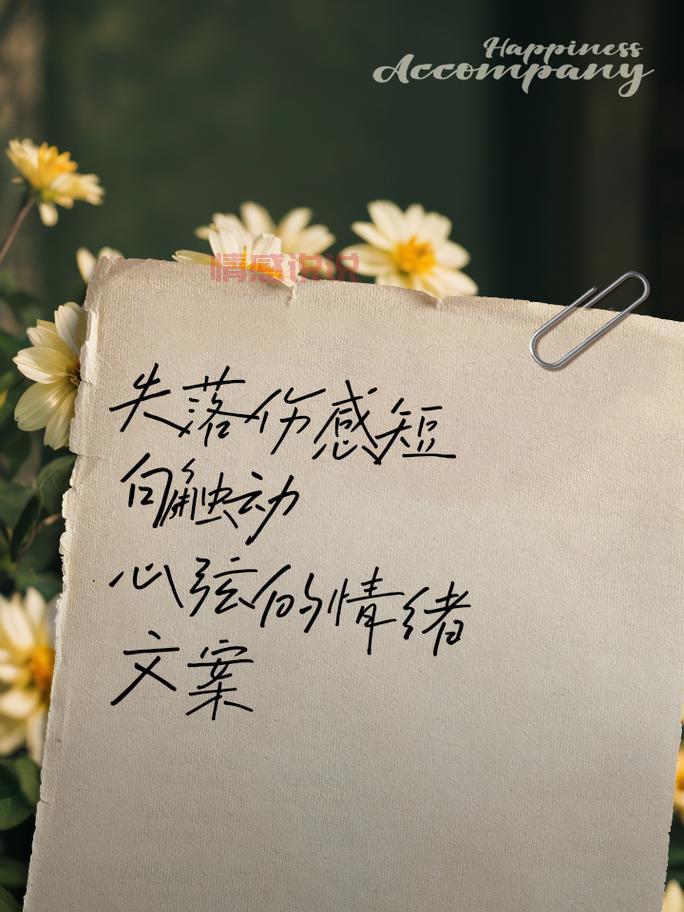 Happiness
Accompany
情感说说
失落伤感短
句触动
心弦的情绪
文案